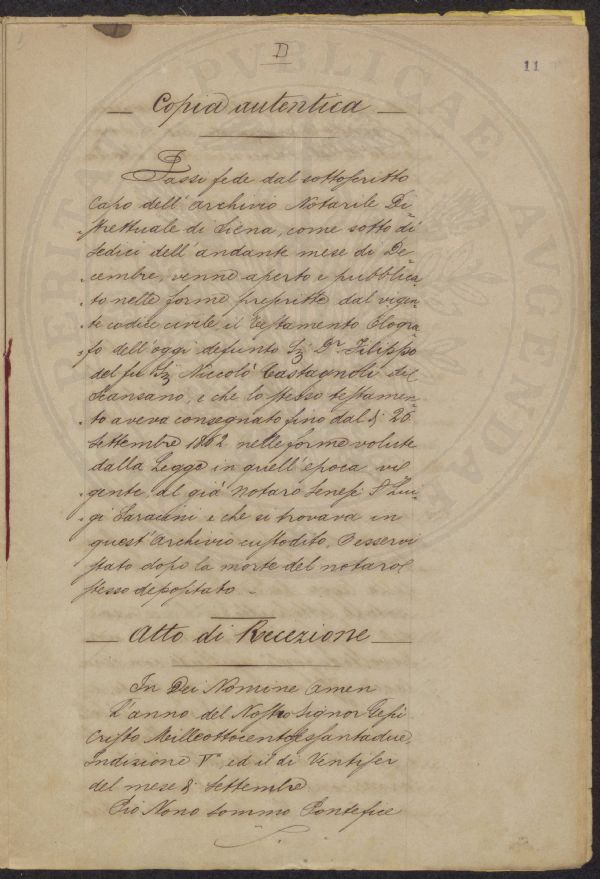 D
11
Copia autentica
Fassi fede dal sottoscritto
Capo dell'Archivio Notarile Di=
strettuale di Siena, come sotto dì
sedici dell'andante mese di De=
cembre, venne aperto e pubblica=
to nelle forme prescritte dal vigen=
te codice civile il Testamento Ologra=
fo dell'oggi defunto Sig. Dr. Filippo
del fu Sig. Niccolò Castagnoli di
Scansano, e che lo stesso testamen=
to aveva consegnato fino dal dì 26
Settembre 1862 nelle forme volute
dalla Legge in quell'epoca vi=
gente al già Notaro Senese Sr Lui=
gi Saracini e che si trovava in
quest'Archivio custodito,
stato dopo la morte del notaro
stesso depositato.
Atto di Recezione
In Dei Nomine Amen
L'anno del Nostro Signor Gesù
Cristo Milleottocentosessantadue,
Indizione V. ed il dì Ventisei
del mese di Settembre
Pio Nono sommo Pontefice
PUBLICAE